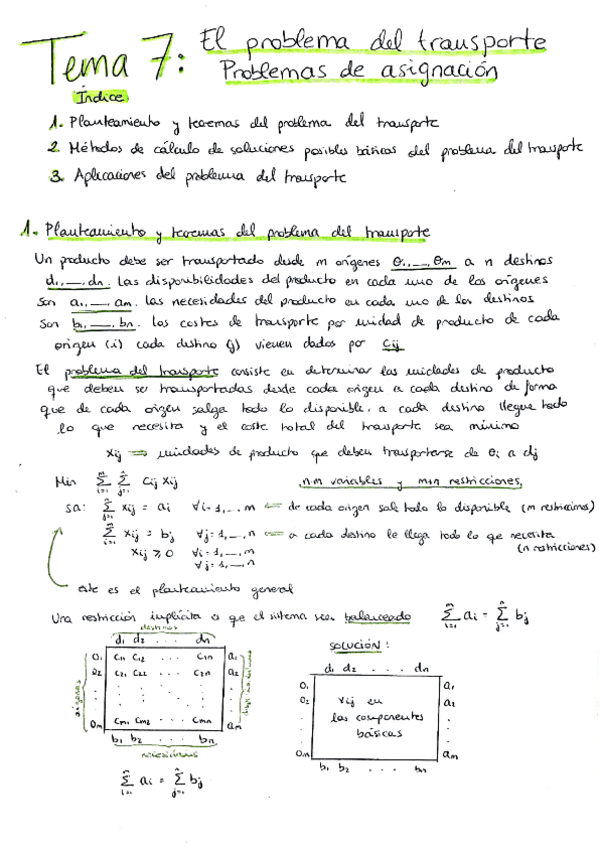 Tema 7: El problema del transporte
Problemas de asignación
Índice
1. Planteamiento y teoremas del problema del transporte
2. Métodos de cálculo de soluciones posibles básicas del problema del transporte
3. Aplicaciones del problema del transporte
1. Planteamiento y teoremas del problema del transporte
Un producto debe ser transportado desde m orígenes O₁, ..., Oₘ a n destinos
d₁, ..., dₙ. Las disponibilidades del producto en cada uno de los orígenes
son a₁, ..., aₘ. Las necesidades del producto en cada uno de los destinos
son b₁, ..., bₙ. Los costes de transporte por unidad de producto de cada
origen (i) cada destino (j) vienen dados por Cij
El problema del transporte consiste en determinar las unidades de producto
que deben ser transportadas desde cada origen a cada destino de forma
que de cada origen salga todo lo disponible, a cada destino llegue todo
lo que necesita y el coste total del transporte sea mínimo
Xij ⇒ unidades de producto que deben transportarse de Oi a dj
Min Σ(i=1, m) Σ(j=1, n) Cij Xij n·m variables y m+n restricciones
sa: Σ(j=1, n) Xij = ai ∀i=1, ..., m ⇐ de cada origen sale todo lo disponible (m restricciones)
Σ(i=1, m) Xij = bj ∀j=1, ..., n ⇐ a cada destino le llega todo lo que necesita
(n restricciones)
Xij ≥ 0 ∀i=1, ..., m
∀j=1, ..., n
este es el planteamiento general
Una restricción implícita es que el sistema sea balanceado Σ(i=1, m) ai = Σ(j=1, n) bj
destinos
d₁ d₂ . . . dₙ
O₁ C₁₁ C₁₂ . . . C₁ₙ a₁
O₂ C₂₁ C₂₂ . . . C₂ₙ a₂
Oₘ Cₘ₁ Cₘ₂ . . . Cₘₙ aₘ
b₁ b₂ . . . bₙ
orígenes
necesidades
Σ(i=1, m) ai = Σ(j=1, n) bj
SOLUCIÓN:
d₁ d₂ . . . dₙ
O₁ a₁
O₂ Xij en a₂
las componentes
básicas
Oₘ aₘ
b₁ b₂ . . . bₙ